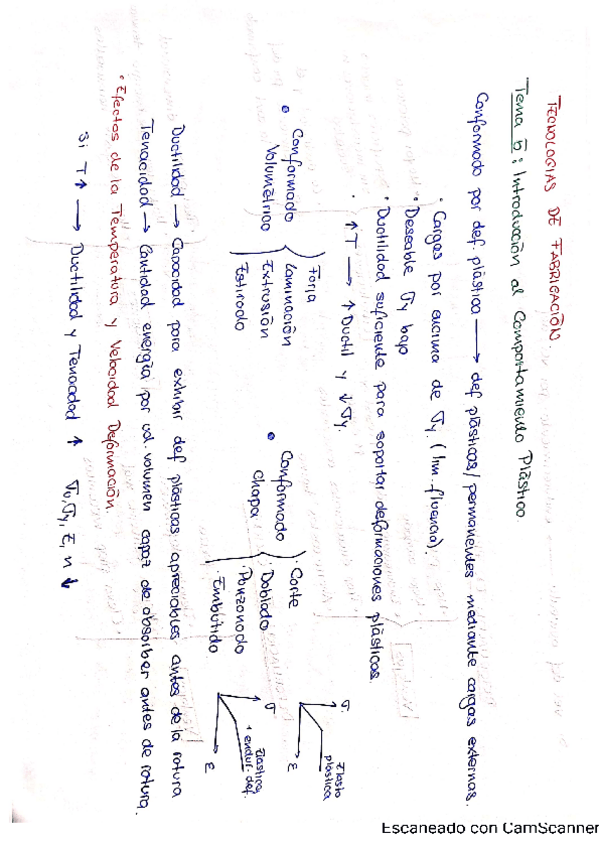 TECNOLOGIAS DE FABRICACIÓN.
Tema 5: Introducción al Comportamiento Plástico
Conformado por def. plástica → def plásticas/permanentes mediante cargas externas.
· Cargas por encima de σy. (lím. fluencia).
· Deseable σy bajo
· Ductilidad suficiente para soportar deformaciones plásticas.
· ↑T → ↑Ductil y ↓σy.
• Conformado Volumétrico
Forja
Laminación
Extrusión
Estirado
• Conformado Chapa
· Corte
· Doblado
· Punzonado
Embutido
σ
Elasto plástica
ε
σ
Elástica + endur. def.
ε
Ductilidad → Capacidad para exhibir def plásticas apreciables antes de la rotura
Tenacidad → Cantidad energía por ud. volumen capaz de absorber antes de rotura.
• Efectos de la Temperatura y Velocidad Deformación
Si T↑ → Ductilidad y Tenacidad ↑ σu, σy, E, n ↓
Escaneado con CamScanner